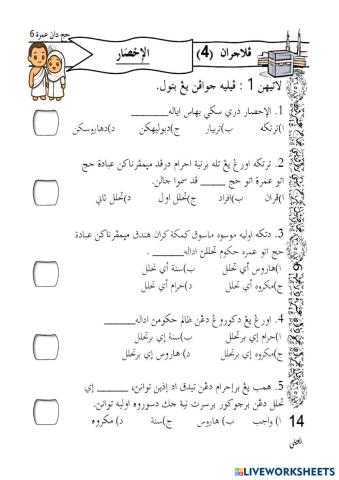 حج دان عمرة 6
ڤلاجران (4) الإحْصَار
لاتيهن 1 : ڤيليه جواڤن يڠ بتول.
1. الإحصار دري سݢي بهاس اياله________
ا)ترتكه ب)تربيار ج)دبوليهكن د)دهاروسكن
2. ترتكه اورڠ يڠ تله برنية احرام درڤد ميمڤرناكن عبادة حج
اتو عمرة اتو حج _____ قد سموا جالن.
ا)قران ب)افراد ج)تحلل اول د)تحلل ثاني
3. دتكه اوليه موسوه ماسوق كمكة كران هندق ميمڤرناكن عبادة
حج اتو عمره حكوم تحللن اداله________ .
ا)هاروس أي تحلل ب)سنة أي تحلل
ج)مكروه أي تحلل د)حرام أي تحلل
4. اورڠ يڠ دكوروڠ دڠن ظالم حكومن اداله________
ا)حرام إي برتحلل ب)سنة إي برتحلل
ج)مكروه إي برتحلل د) هاروس إي برتحلل
5. همب يڠ برإحرام دڠن تيدق اد إذين توانن، _______ إي
تحلل دڠن برچوكور برسرت نية جك دسوروه اوليه توانن.
ا) واجب ب) هاروس ج)سنة د) مكروه
14
LIVEWORKSHEETS